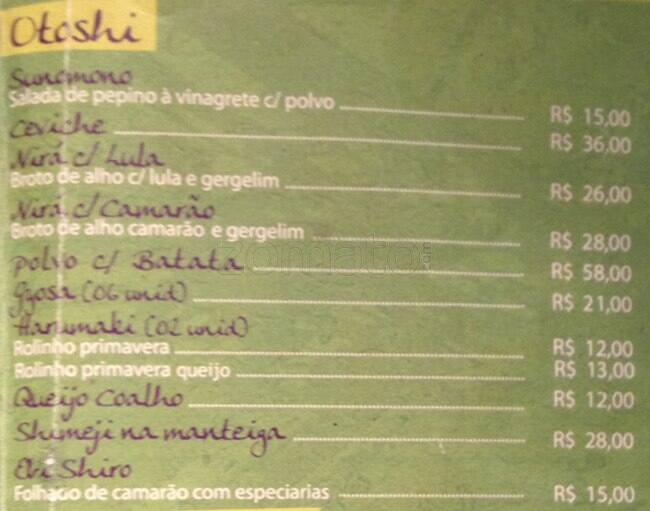 Otoshi
Sunomono
Salada de pepino à vinagrete c/ polvo R$ 15,00
Ceviche R$ 36,00
Nirá c/ Lula
Broto de alho c/ lula e gergelim R$ 26,00
Nirá c/ Camarão
Broto de alho camarão e gergelim R$ 28,00
zomato.com
Polvo c/ Batata R$ 58,00
Gyosa (06 unid) R$ 21,00
Harumaki (02 unid)
Rolinho primavera R$ 12,00
Rolinho primavera queijo R$ 13,00
Queijo Coalho R$ 12,00
Shimeji na manteiga R$ 28,00
Ebi Shiro
Folhado de camarão com especiarias R$ 15,00